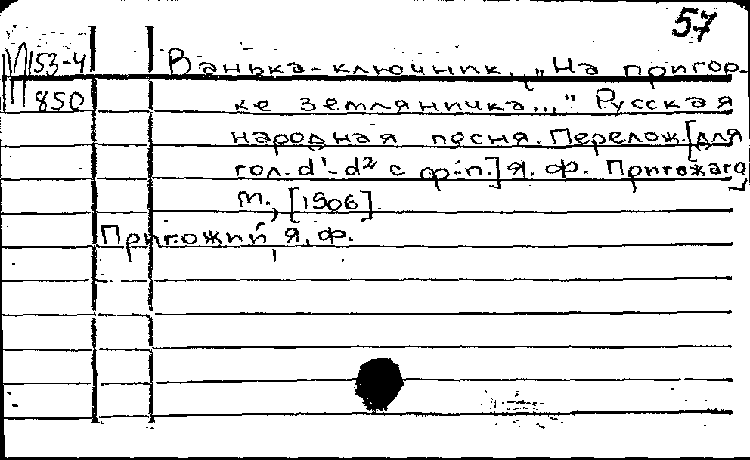 57
М153-4 Ванька-ключник. "На пригор-
850 ке земляничка..." Русская
народная песня. Перелож. [для
гол. d¹-d² с ф-п.] Я. Ф. Пригожаго
М., [1906]
Пригожий, Я. Ф.